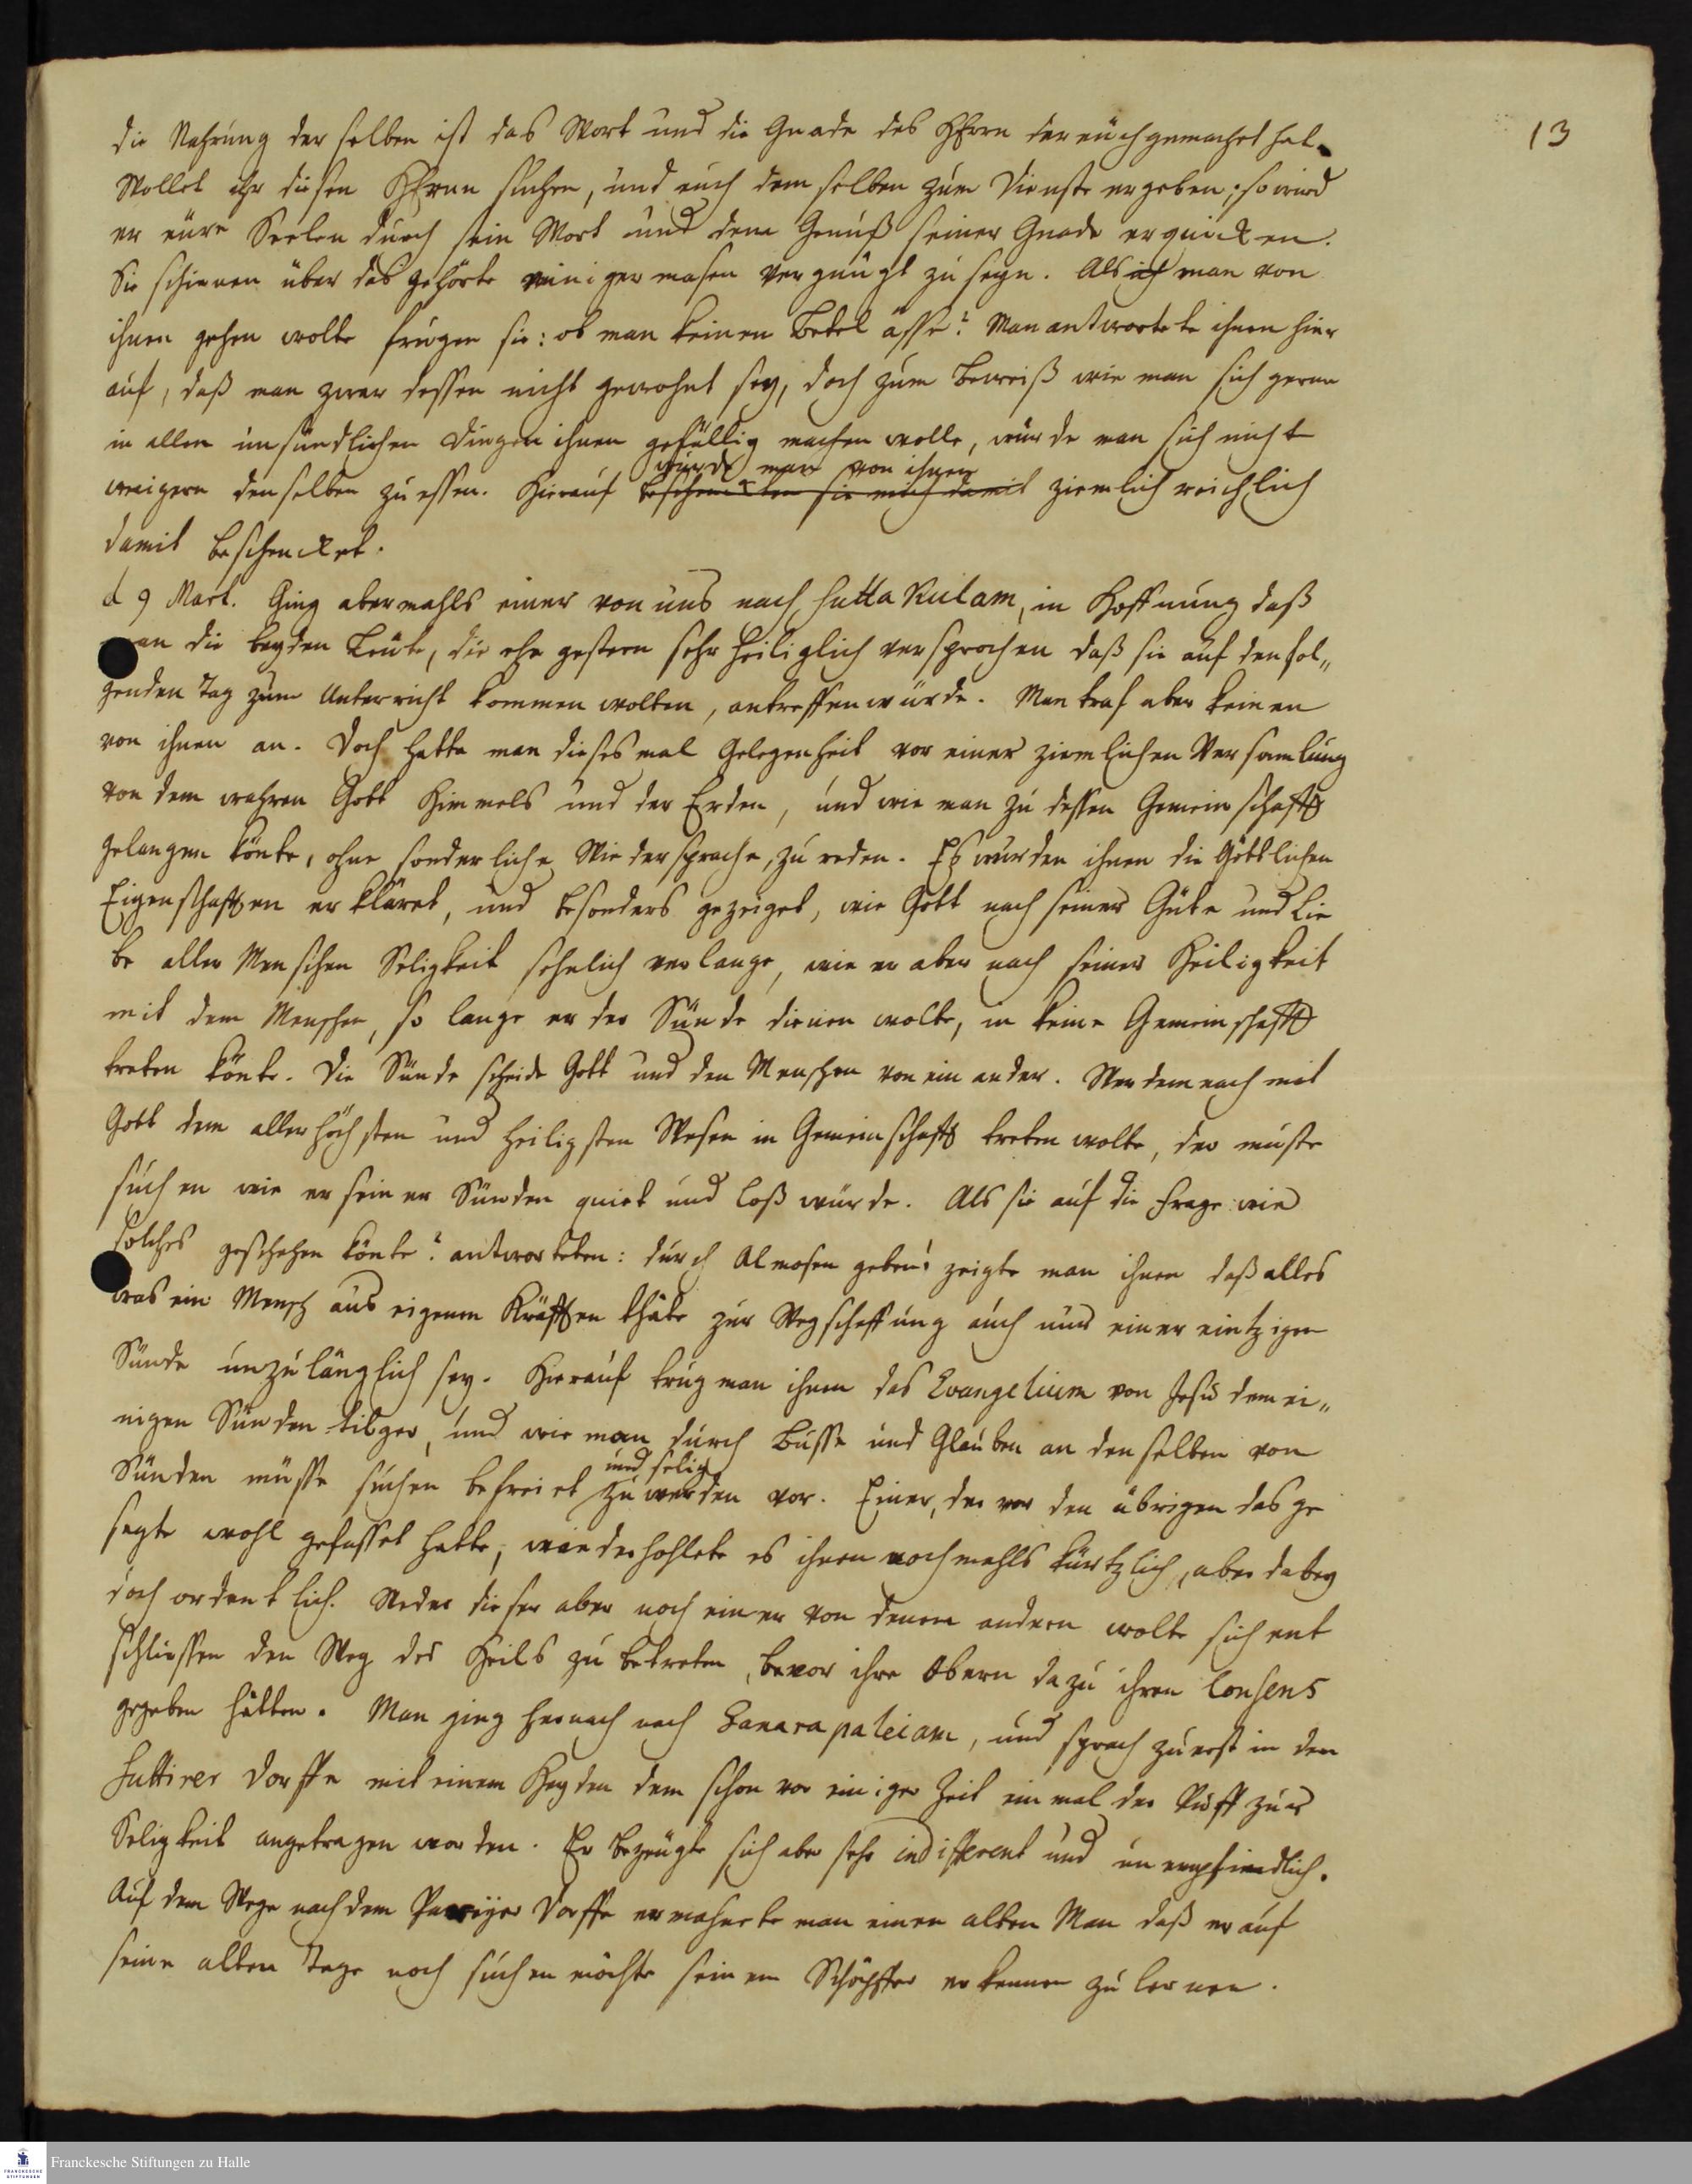 13
die Nahrung derselben ist das Wort und die Gnade des HErrn der eüch gemachet hat.
Wollet ihr diesen HErrn suchen, und euch demselben zum Dienste ergeben; so wird
er eure Seelen durch sein Wort und dem Genuß seiner Gnade erquicken.
Sie schienen über das gehörte einiger masen vergnügt zu seyn. Als ich man von
ihnen gehen wolte frugen sie: ob man keinen Betel ässe? Man antwortete ihnen hier
auf, daß man zwar dessen nicht gewohnt sey, doch zum Beweiß wie man sich gerne
in allen unsündlichen Dingen ihnen gefällig machen wolle, würde man sich nicht
wurde man von ihnen
weigern denselben zu essen. Hierauf beschenckten sie mich damit ziemlich reichlich
damit beschencket.
d 9 Mart. Ging abermahls einer von uns nach Suttakulam, in Hoffnung daß
man die beyden Leute, die ehe gestern sehr heiliglich versprochen daß sie auf den fol„
genden Tag zum Unterricht kommen wolten, antreffen würde. Man traf aber keinen
von ihnen an. Doch hatte man dieses mal Gelegenheit vor einer ziemlichen Versamlung
von dem wahren Gott Himmels und der Erden, und wie man zu dessen Gemeinschafft
gelangen könte, ohne sonderliche Wiedersprache, zu reden. Es wurden ihnen die Göttlichen
Eigenschafften erkläret, und besonders gezeiget, wie Gott nach seiner Güte und Lie
be aller Menschen Seligkeit sehnlich verlange, wie er aber nach seiner Heiligkeit
mit dem Menschen, so lange er der Sünde dienen wolte, in keine Gemeinschafft
treten könte. Die Sünde scheide Gott und den Menschen von ein ander. Wer demnach mit
Gott dem allerhöchsten und heiligsten Wesen in Gemeinschafft treten wolte, der müste
suchen wie er seiner Sünden quiet und loß würde. Als sie auf die Frage: wie
solches geschehen könte? antworteten: durch Almosen geben! zeigte man ihnen daß alles
was ein Mensch aus eigenen Kräfften thäte zur Wegschaffung auch nur einer eintzigen
Sünde unzulänglich sey. Hierauf trug man ihnen das Evangelium von Jesu dem ei„
nigen Sünden-tilger, und wie man durch Busse und Glauben an denselben von
und selig
Sünden müsse suchen befreiet zu werden vor. Einer, der vor den übrigen das ge
sagte wohl gefasset hatte, wiederhohlete es ihnen nochmahls kürtzlich, aber dabey
doch ordentlich. Weder dieser aber noch einer von denen andern wolte sich ent
schliessen den Weg des Heils zu betreten, bevor ihre Obern dazu ihren Consens
gegeben hätten. Man ging hernach nach Sanarapaleiam, und sprach zuerst in dem
Suttirer Dorffe mit einem Heyden dem schon vor einiger Zeit einmal der Ruff zur
Seligkeit angetragen worden. Er bezeugte sich aber sehr indifferent und unempfindlich.
Auf dem Wege nach dem Parrejer Dorffe ermahnete man einen alten Man daß er auf
seine alten Tage noch suchen möchte seinen Schöpffer erkennen zu lernen.
Franckesche Stiftungen zu Halle